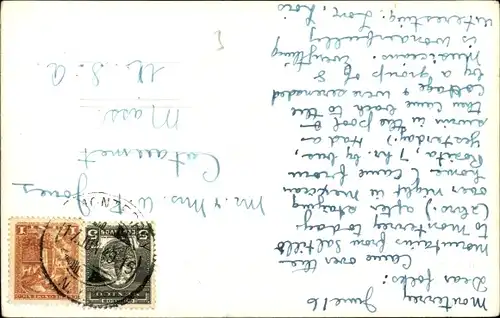 Monterrey
June 16
Dear folks:
Came over the
mountains from Saltillo
to Monterrey today.
(Chro.) after staying
over night in Mexican
home. Came from
Rosita, 7 hr. by bus,
yesterday. Had a
swim in the pool &
then came back to the
cottage & were serenaded
by a group of 8
musicians. Everything
is wonderfully
interesting. Love, Lois
Mr. & Mrs. W. Jones
Cataumet
Mass
U. S. A.
5
1
5